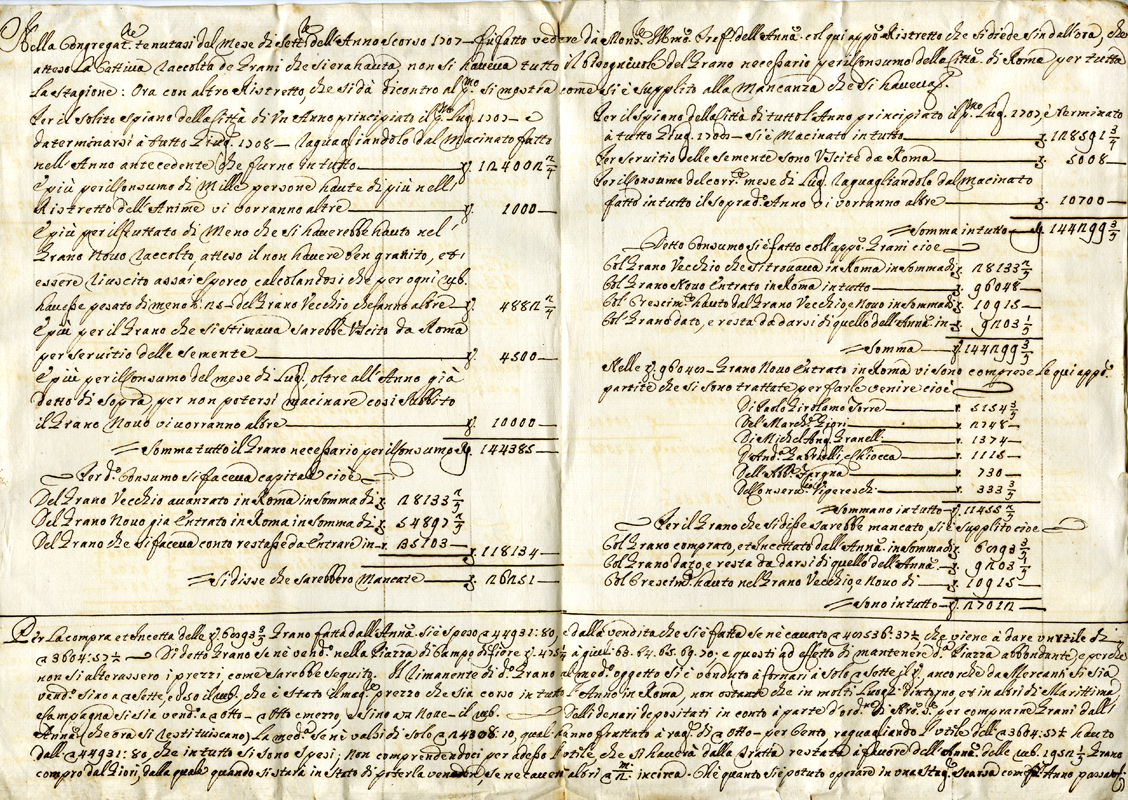 Nella Congregat.ne tenutasi del Mese di Sett.re dell'Anno scorso 1707 — fu fatto vedere da Mons.re Ill.mo Pref.o dell'Ann.a col qui appo Ristretto che si diede sin dall'ora, che
atteso la Cattiva raccolta de Grani che si era hauta, non si haueua tutto il bisogniuole del Grano necessario per il Consumo della Città di Roma per tutta
la stagione: Ora con altro Ristretto, che si dà dicontro al p.mo si mostra come si è supplito alla Mancanza che si haueua.
Per il solito spiano della Città di Vn Anno principiato il p.mo Lug. 1707 — e
da terminarsi à tutto Giug. 1708 — raguagliandolo dal Macinato fatto
nell'Anno antecedente, che furno in tutto — r. 124002 2/5
E più per il Consumo di Mille persone haute di più nell'
Ristretto dell'Anime vi vorranno altre — r. 1000 —
E più per il fruttato di Meno che si hauerebbe hauto nel'
Grano Nouo raccolto, atteso il non hauere ben granito, et
essere riuscito assai sporco calcolandosi che per ogni rub.
hauesse pesato di meno lib. 25 — del Grano Vecchio che fanno altre — r. 4882 2/5
E più per il Grano che si stimaua sarebbe Vscito da Roma
per seruitio delle semente — r. 4500 —
E più per il Consumo del mese di Lug. oltre all'Anno già
detto di sopra, per non potersi macinare così subbito
il Grano Nouo vi vorranno altre — r. 10000 —
Somma tutto il Grano necessario per il Consumo r. 144385 —
Per d.o Consumo si faceua capitale cioè
Del Grano Vecchio auanzato in Roma in Somma di r. 28133 2/5
Del Grano Nouo già Entrato in Roma in Somma di r. 54897 2/5
Del Grano che si faceua conto restasse da Entrare in r. 35103 —
r. 118134 —
Si disse che sarebbero Mancate — r. 26251 —
Per il spiano della Città di tutto l'Anno principiato il p.mo Lug. 1707, e terminato
à tutto Giug. 1708 — si è Macinato in tutto — r. 128591 3/5
Per seruitio delle Semente sono Vscite da Roma — r. 5008 —
Per il Consumo del corr.e mese di Lug. raguagliandolo dal Macinato
fatto in tutto il soprad.o Anno vi vorranno altre — r. 10700 —
Somma in tutto — r. 144299 3/5
Detto Consumo si è fatto coll'appo Grani cioè
Col Grano Vecchio che si trouaua in Roma in Somma di r. 28133 2/5
Col Grano Nouo Entrato in Roma in tutto — r. 96048 —
Col Crescim.o hauto dal Grano Vecchio, e Nouo in Somma di r. 10915 —
Col Grano dato, e resta da darsi di quello dell'Ann.a in r. 9203 1/5
Somma — r. 144299 3/5
Nelle r. 96048 — Grano Nouo Entrato in Roma vi sono comprese le qui appo
partite che si sono trattate per farle venire cioè
Di Paolo Girolamo Torre — r. 5154 3/5
Del March.e Fiori — r. 2748 —
Di Michel'Ang. Granelli — r. 1374 —
D'And. Gabrielli, e Chiocca — r. 1115 —
Dell'Abb.e Farsgna — r. 730 —
r. 333 3/5
Sommano in tutto — r. 11455 2/5
Per il Grano che si disse sarebbe mancato, si è supplito cioè
Col Grano comprato, et Incettato dall'Ann.a in Somma di r. 6893 3/5
Col Grano dato, e resta da darsi di quello dell'Ann.a r. 9203 3/5
Col Crescim.o hauto nel Grano Vecchio, e Nouo di — r. 10915 —
Sono in tutto — r. 27012 —
Per la compra et Incetta delle r. 6893 3/5 Grano fatta dall'Ann.a si è speso 44931:80, e dalla vendita che si è fatta se nè cauato 48536:37½ che viene à dare vn vtile di
3604:57½ — Di detto Grano se nè vend.o nella Piazza di Campo di Fiore r. à giuli 63. 64. 65. 69. 70; e questi ad effetto di mantenere d.a Piazza abbondante, e perche
non si alterassero i prezzi come sarebbe seguito. Il rimanente di d.o Grano al med.o oggetto si è venduto a fornari a solo sette il r., ancorche da Mercanti si sia
vend.o sino a sette, e 80 il rub., che è stato il mag.r prezzo che sia corso in tutto l'Anno in Roma, non ostante che in molti Luoghi d'intorno et in altri di Marittima
e Campagna si sia vend.o a otto — a otto e mezzo, e sino a Noue — il rub. Delli denari depositati in conto à parte d'ord.ne di N.ro S.re per comprarne Grani dall'
Ann.a (che ora si restituiscano) la med.a se nè valsi di solo 24308:10, quali hanno fruttato à rag.ne di otto — per Cento, raguagliando l'vtile delle 3604:57½ hauto
dall. 44931:80, che in tutto si sono spesi; Non comprendendoci per adesso l'vtile, che si hauerà dalla fratta restata à fauore dell'Ann.a delle rub. 1952 1/5 Grano
compro dal Fiori, dalla quale quando si starà in stato di poterla vendere se ne caueranno altri incirca. Ch'è quanto si è potuto operare in vna Stag.ne scarsa come l'Anno passato.